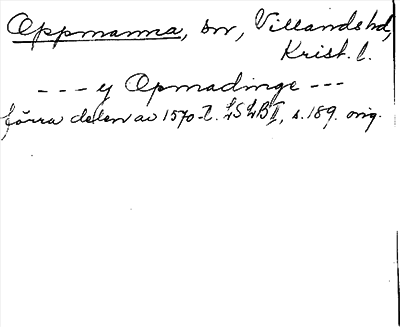 Oppmanna, sn, Villands hd,
Krist. l.
--- y Opmadinge ---
förra delen av 1570-t. LSLB II, s. 189. orig.